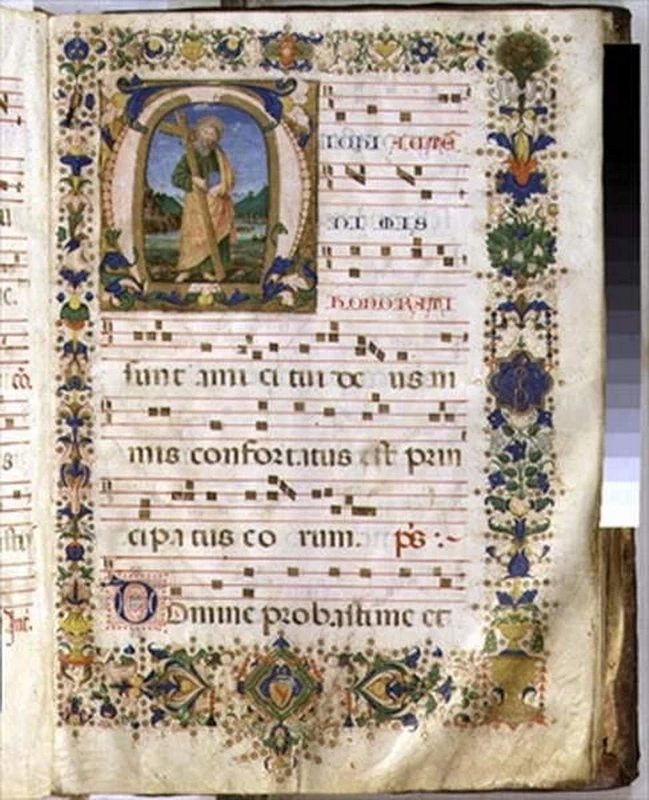 Michi autē
ni mis
honorati
sunt ami ci tui de us ni
mis confortatus est prin
cipa tus eo rum. ps :~
Domine probasti me et